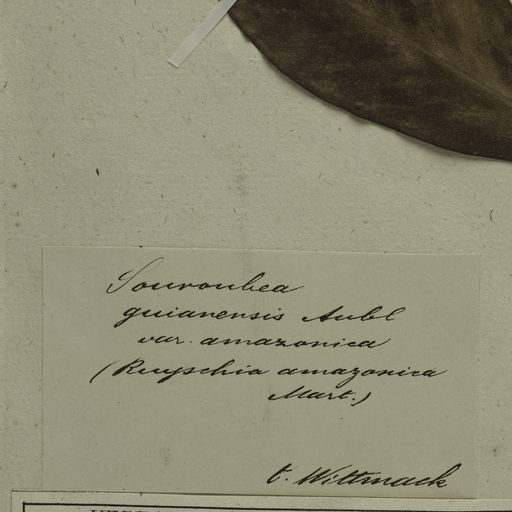 Souroubea
guianensis Aubl
var. amazonica
(Ruyschia amazonica
Mart.)
t. Wittmack